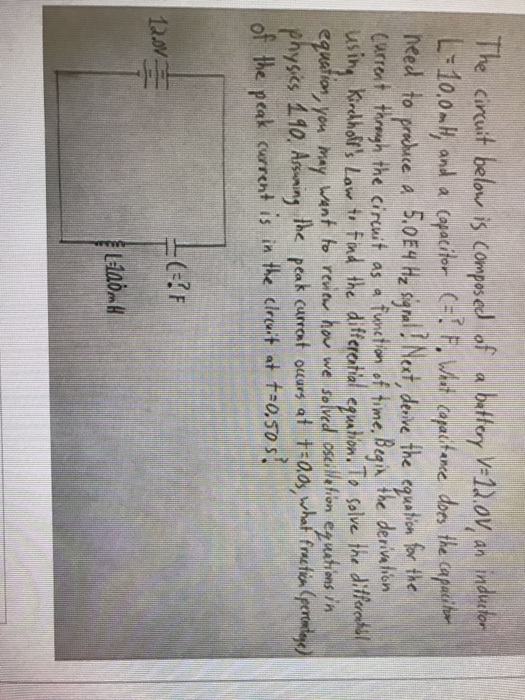 The circuit below is composed of a battery V=12.0V, an inductor
L=10.0mH, and a capacitor C=? F. What capacitance does the capacitor
need to produce a 5.0E4 Hz signal? Next, derive the equation for the
current through the circuit as a function of time. Begin the derivation
using Kirchhoff's Law to find the differential equation. To solve the differential
equation, you may want to review how we solved oscillation equations in
physics 190. Assuming the peak current occurs at t=0.0s, what fraction (percentage)
of the peak current is in the circuit at t=0.50s?
12.0V
C=? F
L=10.0mH